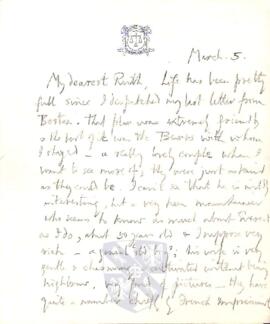 March. 5.
My dearest Ruth, Life has been pretty
full since I despatched my last letter from
Boston. That place was extremely friendly
& the best of it was the Bearses with whom
I stayed – a really lovely couple whom I
want to see more of; they were just as kind
as they could be. I can't say that he is wildly
interesting, but a very keen mountaineer
who seems to know as much about Everest
as I do, about 30 years old & I suppose very
rich – a great old boy; his wife is very
gentle & charming & cultivated without being
highbrow, very fond pictures – they have
quite a number chiefly of French Impressionist